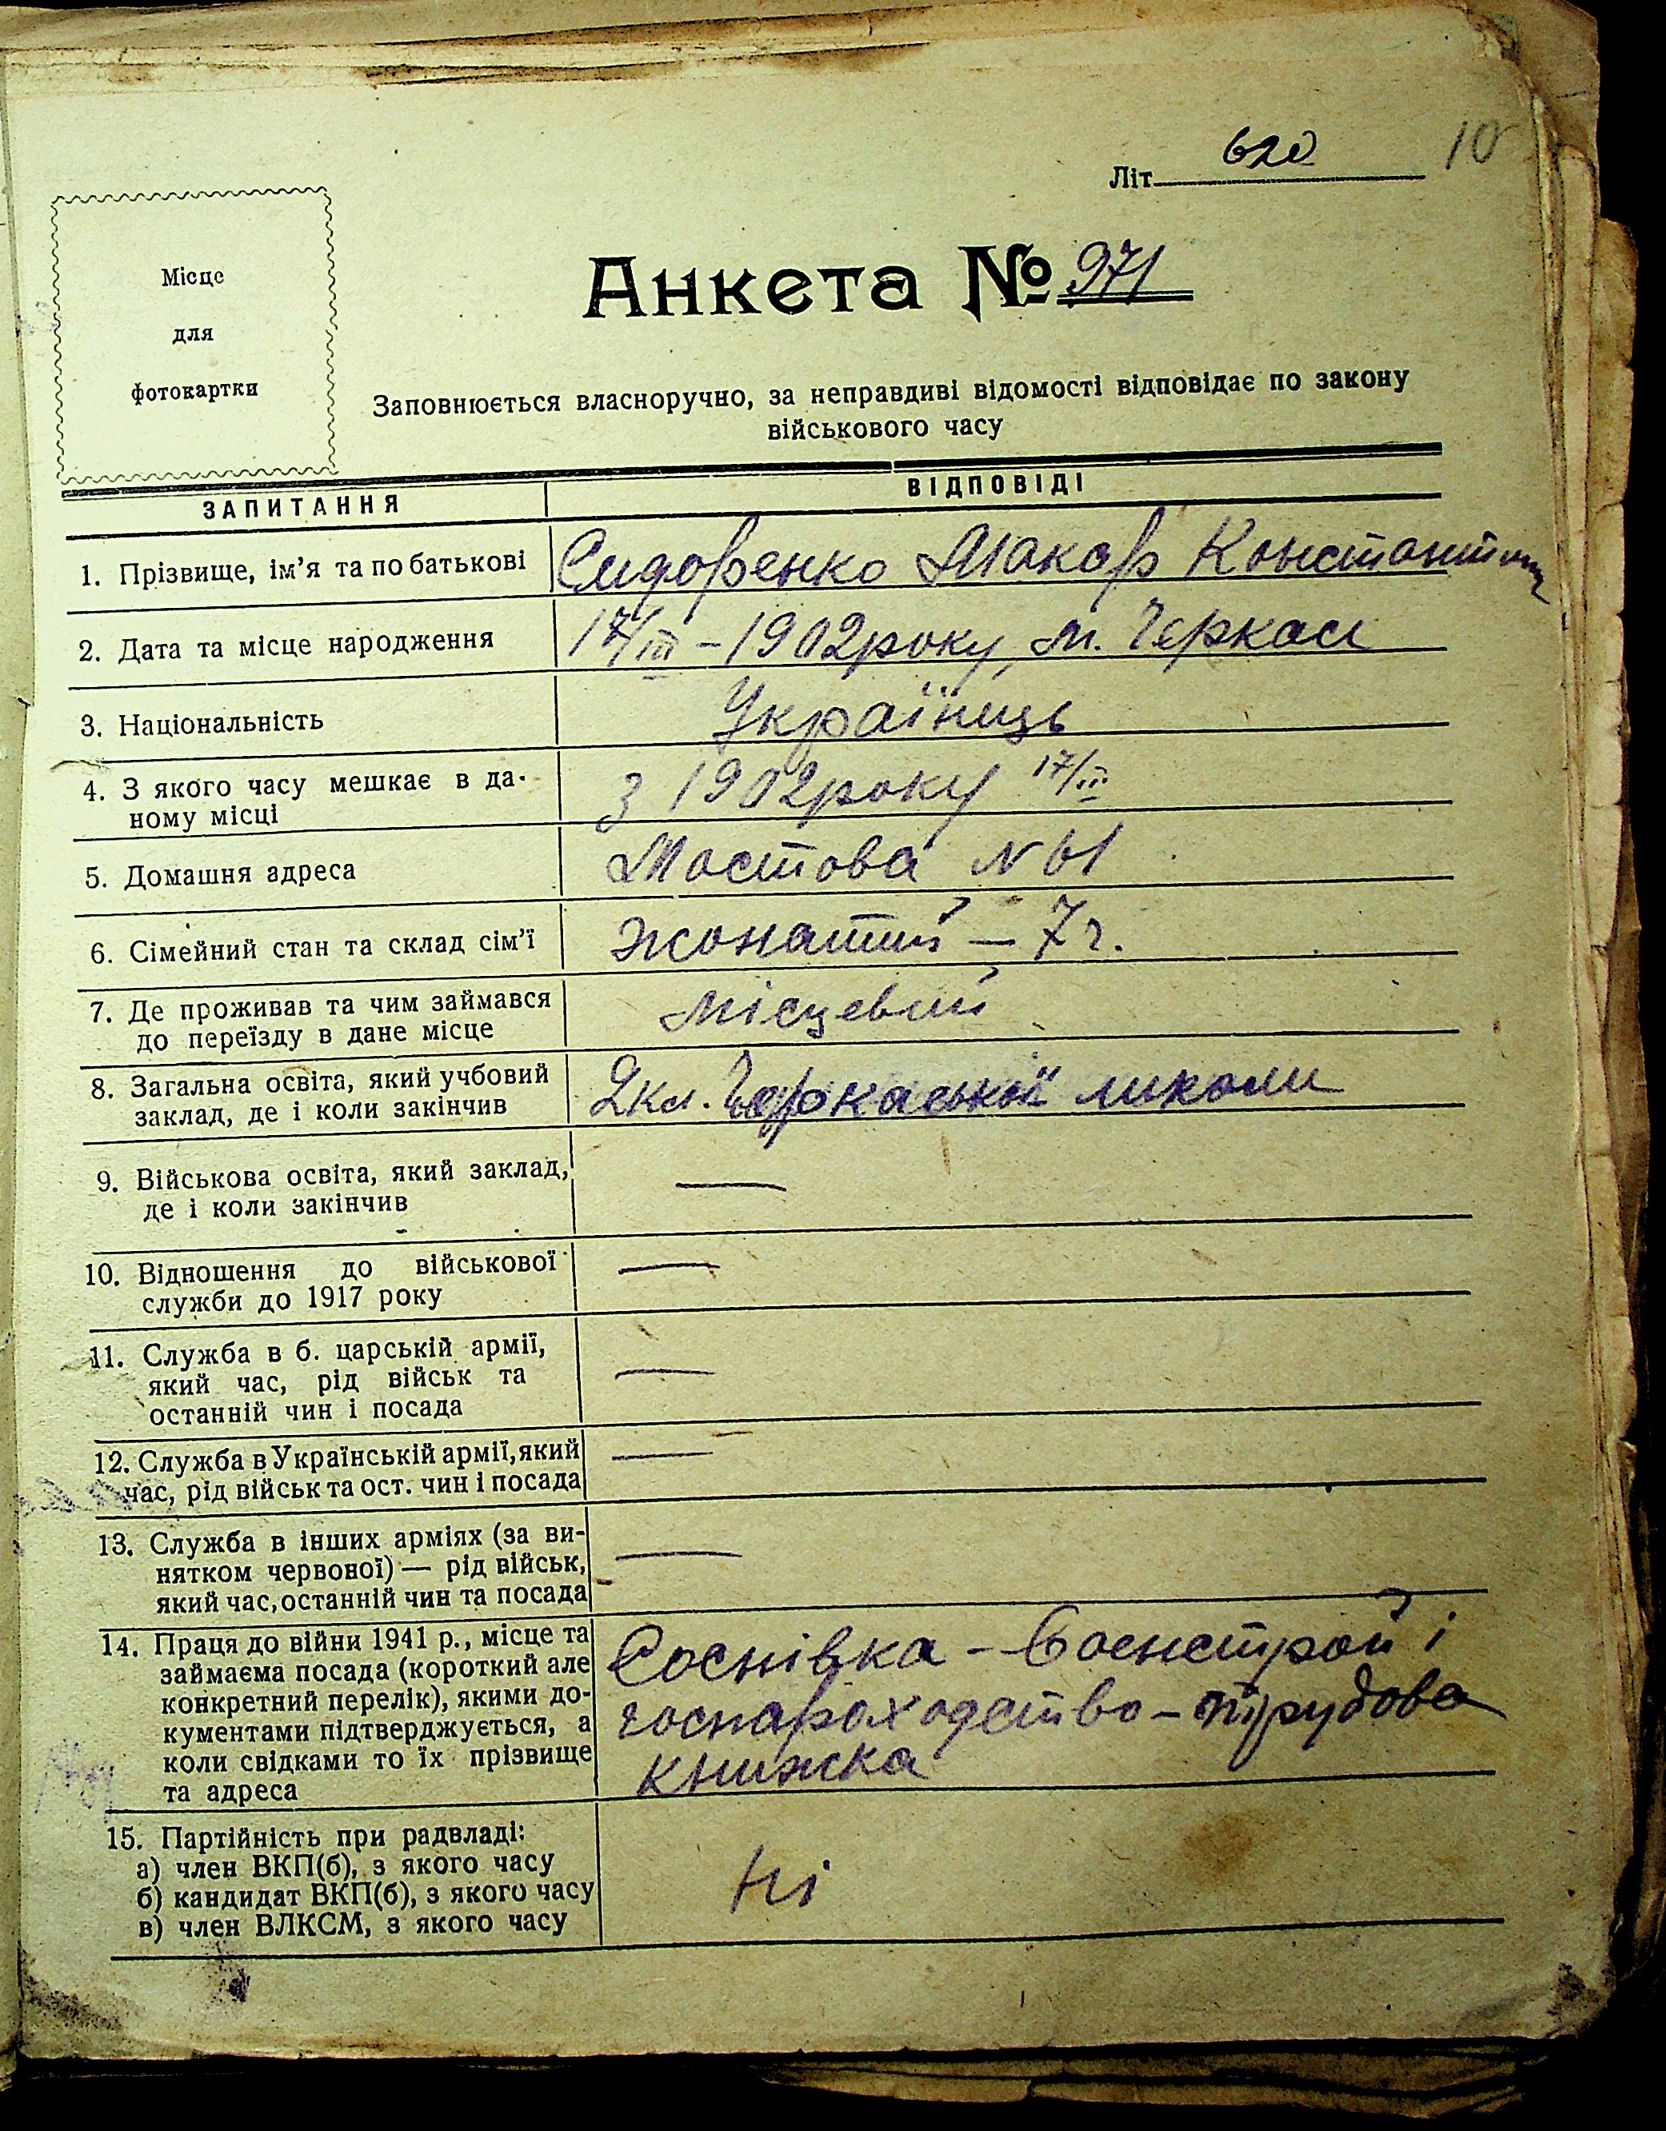 10
Літ 620
Місце
для
фотокартки
Анкета № 971
Заповнюється власноручно, за неправдиві відомості відповідає по закону
військового часу
ЗАПИТАННЯ ВІДПОВІДІ
1. Прізвище, ім'я та по батькові Сидоренко Макар Константин
2. Дата та місце народження 17/III – 1902 року, м. Черкаси
3. Національність Українець
4. З якого часу мешкає в да- з 1902 року 17/III
ному місці
5. Домашня адреса Мостова N 61
6. Сімейний стан та склад сім'ї жонатий – 7 ч.
7. Де проживав та чим займався місцевий
до переїзду в дане місце
8. Загальна освіта, який учбовий 2 кл. Черкаської школи
заклад, де і коли закінчив
9. Військова освіта, який заклад, —
де і коли закінчив
10. Відношення до військової —
служби до 1917 року
11. Служба в б. царській армії,
який час, рід військ та —
останній чин і посада
12. Служба в Українській армії, який —
час, рід військ та ост. чин і посада
13. Служба в інших арміях (за ви- —
нятком червоної) — рід військ,
який час, останній чин та посада
14. Праця до війни 1941 р., місце та Соснівка – Военстрой і
займаєма посада (короткий але
конкретний перелік), якими до- госпароходство – трудова
кументами підтверджується, а
коли свідками то їх прізвище книжка
та адреса
15. Партійність при радвладі:
а) член ВКП(б), з якого часу Ні
б) кандидат ВКП(б), з якого часу
в) член ВЛКСМ, з якого часу